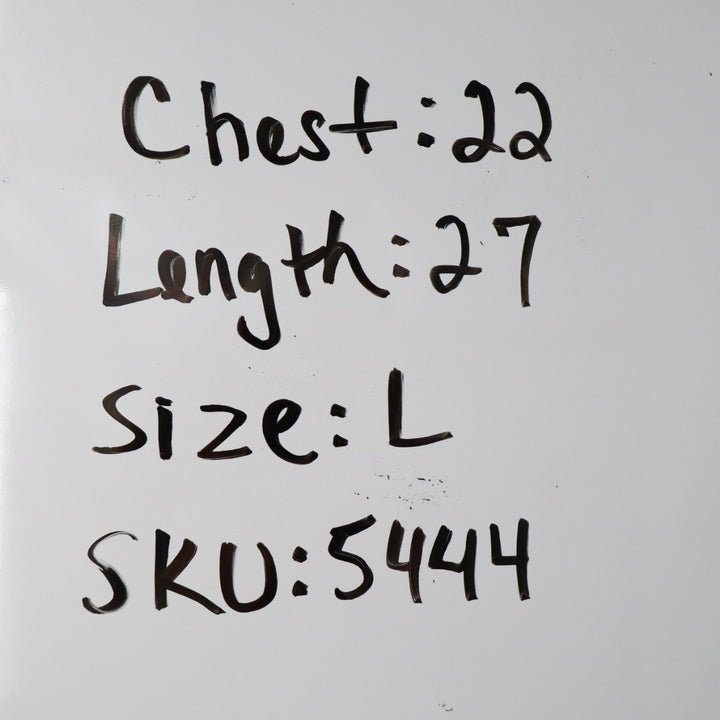 Chest:22
Length:27
Size:L
SKU:5444